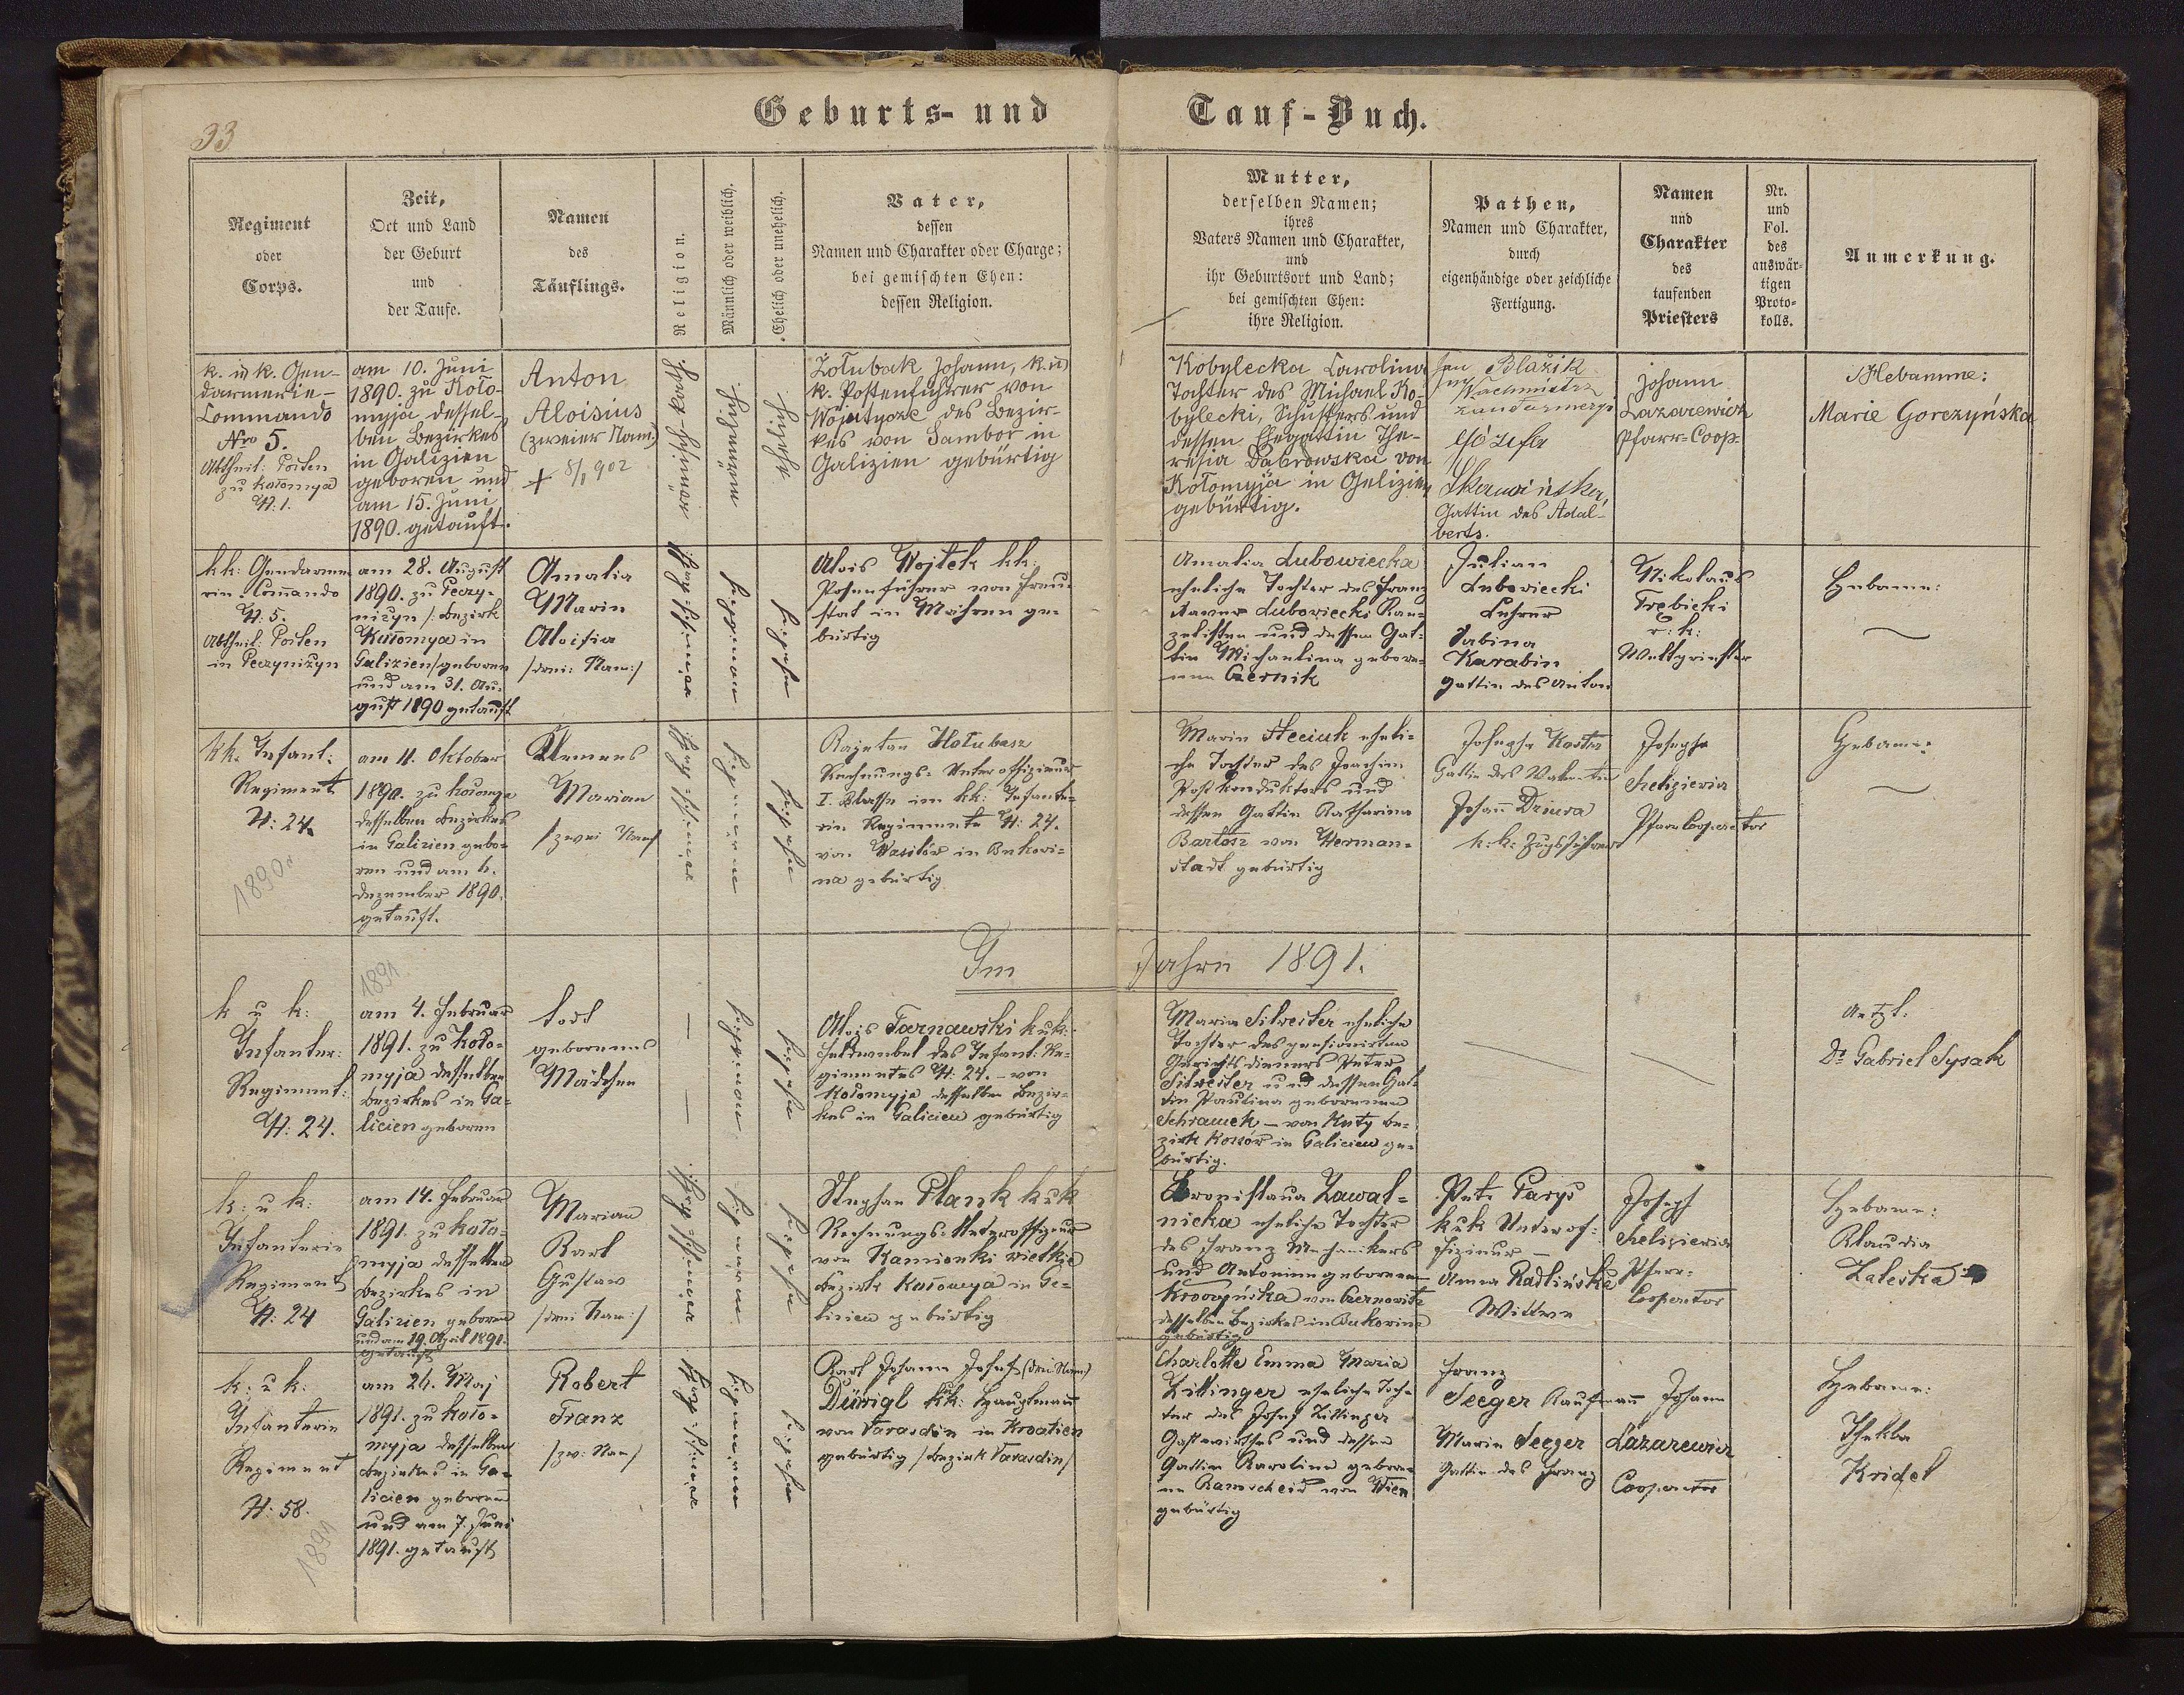 33
Geburts- und Tauf-Buch.
Regiment
oder
Corps.
Zeit,
Ort und Land
der Geburt
und
der Taufe.
Namen
des
Täuflings.
Religion.
Männlich oder weiblich.
Ehelich oder unehelich.
Vater,
dessen
Namen und Charakter oder Charge;
bei gemischten Ehen:
dessen Religion.
Mutter,
derselben Namen;
ihres
Vaters Namen und Charakter,
und
ihr Geburtsort und Land;
bei gemischten Ehen:
ihre Religion.
Pathen,
Namen und Charakter,
durch
eigenhändige oder zeichliche
Fertigung.
Namen
und
Charakter
des
taufenden
Priesters
Nr.
und
Fol.
des
auswär-
tigen
Proto-
kolls.
Anmerkung.
k. u k. Gen-
darmerie-
Commando
Nro 5.
Abtheil: Posten
zu Kołomya
N: 1.
am 10. Juni
1890. zu Koło-
myja dessel-
ben Bezirkes
in Galizien
geboren und
am 15. Juni
1890. getauft.
Anton
Aloisius
(zweier Nam:)
+ 8/1 902
männlich
ehelich
Johann, k. u
k. Postenführer von
des Bezir-
kes von Sambor in
Galizien gebürtig
Kobylecka Carolina
Tochter des Michael Ko-
bylecki, Schusters und
dessen Ehegattin The-
resia Dabrowska von
Kołomyja in Galizien
gebürtig.
Jan Blažik
Wachmistrz
żandarmerji
Józefa
Skawińska,
Gattin des Adal-
berts.
Johann
Lazarewicz
Pfarr-Coop.
Hebamme:
Marie Gorczyńska
kk: Gendarme-
rie Commando
N: 5.
Abtheil: Posten
in Peczyniżyn
am 28. August
1890. zu Peczy-
niżyn /: Bezirk
Kołomya in
Galizien/ geboren
und am 31. Au-
gust 1890 getauft
Amalia
Maria
Aloisia
/drei: Nam:/
Alois Wojtek kk:
Postenführer von Freu-
stat in Mähren ge-
bürtig
Amalia Lubowiecka
eheliche Tochter des Franz
Xaver Lubowiecki Kan-
zelisten und dessen Gat-
tin Michaelina gebore-
nen Czernik
Julian
Lubowiecki
Lehrer
Sabina
Karabin
gattin des Anton
Nikolaus
Trębicki
r: k:
Weltpriester
Hebame:
kk. Infant:
Regiment
N: 24.
1890
am 11. Oktober
1890. zu Kołomya
desselben Bezirkes
in Galizien gebo-
ren und am 6.
Dezember 1890.
getauft.
Klemens
Marian
/zwei Nam/
Kajetan Hołubasz
Rechnungs-Unteroffizieur
I. Klasse im kk: Infante-
rie Regimente N: 24.
von Wasilów in Bukowi-
na gebürtig
Maria Steciuk eheli-
che Tochter des Joachim
Postkonduktors und
dessen Gattin Katharina
Bartosz von Herman-
stadt gebürtig
Josepha Koster
Gattin des Valentin
Johann Dziura
k: k: Zugsführer
Joseph
Chelizieria
Pfarr Cooperator
Hebame:
Im Jahre 1891.
k u k:
Infanter:
Regiment:
N: 24.
1891
am 4. Februar
1891. zu Koło-
myja desselben
Bezirkes in Ga-
licien geboren
todt
geborenes
Mädchen
Alois Tarnawski kuk:
Feldwebel des Infant: Re-
gimentes N: 24. - von
Kołomyja desselben Bezir-
kes in Galicien gebürtig
Maria Silvester eheliche
Tochter des pensionirten
Gerichtsdieners Peter
Silvester und dessen Gat-
tin Paulina geborenen
Schramek - von Kuty Be-
zirk Kossów in Galicien ge-
bürtig.
Artzt:
Dr Gabriel Sysak
k: u k:
Infanterie
Regiment
N: 24
am 14. Februar
1891. zu Koło-
myja desselben
Bezirkes in
Galizien geboren
und am 19. April 1891.
getauft
Marian
Karl
Gustaw
/drei: Nam:/
Stephan Plank kuk
Rechnungs-Unteroffizieur
von Kamionki wielkie
Bezirk Kołomya in Ga-
lizien gebürtig
Bronislaua Zawał-
nicka eheliche Tochter
des Franz Mechanikers
und Antonina geborenen
von Czernovitz
desselben Bezirkes in Bukovina
gebürtig
Parys
kuk Unterof-
fizieur -
Anna Radlińska
Wittwe
Joseph
Chelizieria
Pfarr-
Cooperator
Hebame:
Klaudia
Zaleska
k: u k:
Infanterie
Regiment
N: 58.
1891
am 26. Maj
1891. zu Koło-
myja desselben
Bezirkes in Ga-
licien geboren
und am 7. Juni
1891. getauft
Robert
Franz
/zw: Nam/
Karl Johann Josef (drei Nam)
Dürrigl kuk: Hauptmann
von Varasdin in Kroatien
gebürtig /Bezirk Varasdin/
Charlotte Emma Maria
Zittinger eheliche Toch-
ter des Josef Zittinger
Gastwirthes und dessen
Gattin Karolina gebore-
ne Ramscheid von Wien
gebürtig
Franz
Seeger Kaufmann
Maria Seeger
Gattin des Franz
Johann
Lazarewicz
Cooperator
Hebame:
Thekla
Kridel